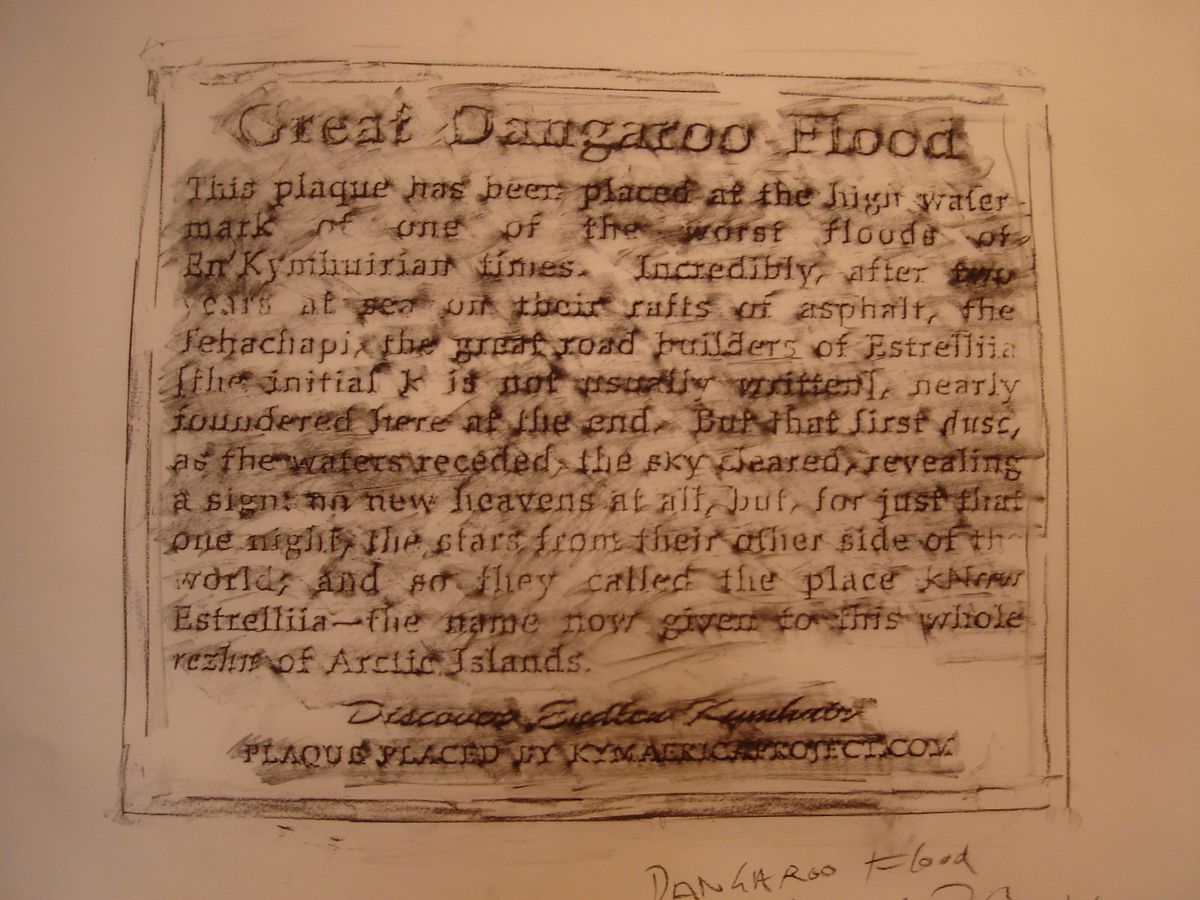 Great Dangaroo Flood
This plaque has been placed at the high water
mark of one of the worst floods of
En'Kymhuirian times. Incredibly, after two
years at sea on their rafts of asphalt, the
Tehachapi, the great road builders of Estrelliia
[the initial k is not usually written], nearly
foundered here at the end. But that first dusc,
as the waters receded, the sky cleared, revealing
a sign: no new heavens at all, but, for just that
one night, the stars from their other side of the
world; and so they called the place
Estrelliia—the name now given to this whole
rezhn of Arctic Islands.
Discover
PLAQUE PLACED BY KYMAERICAPROJECT.COM
DANGAROO Flood